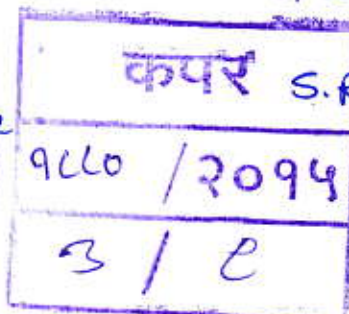 कपर S.R
१८८० / २०१५
३ / ९